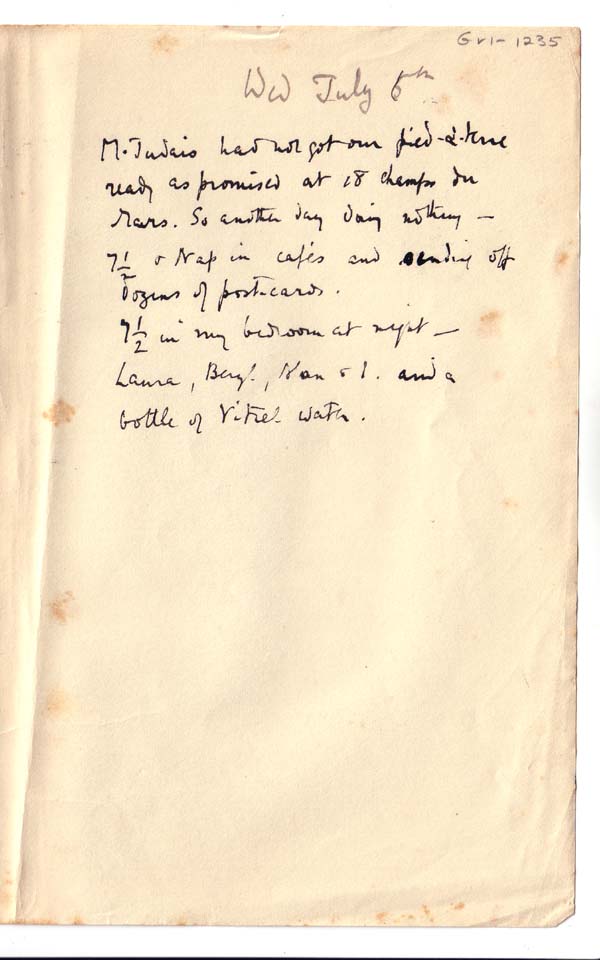 Gv1-1235
Wed July 6th
M. Judais had not got our pied-à-terre
ready as promised at 18 Champs du
Mars. So another day doing nothing -
7½ & Nap in cafés and sending off
dozens of postcards.
7½ in my bedroom at night -
Laura, Beryl, Nan & I. and a
bottle of Vittel water.